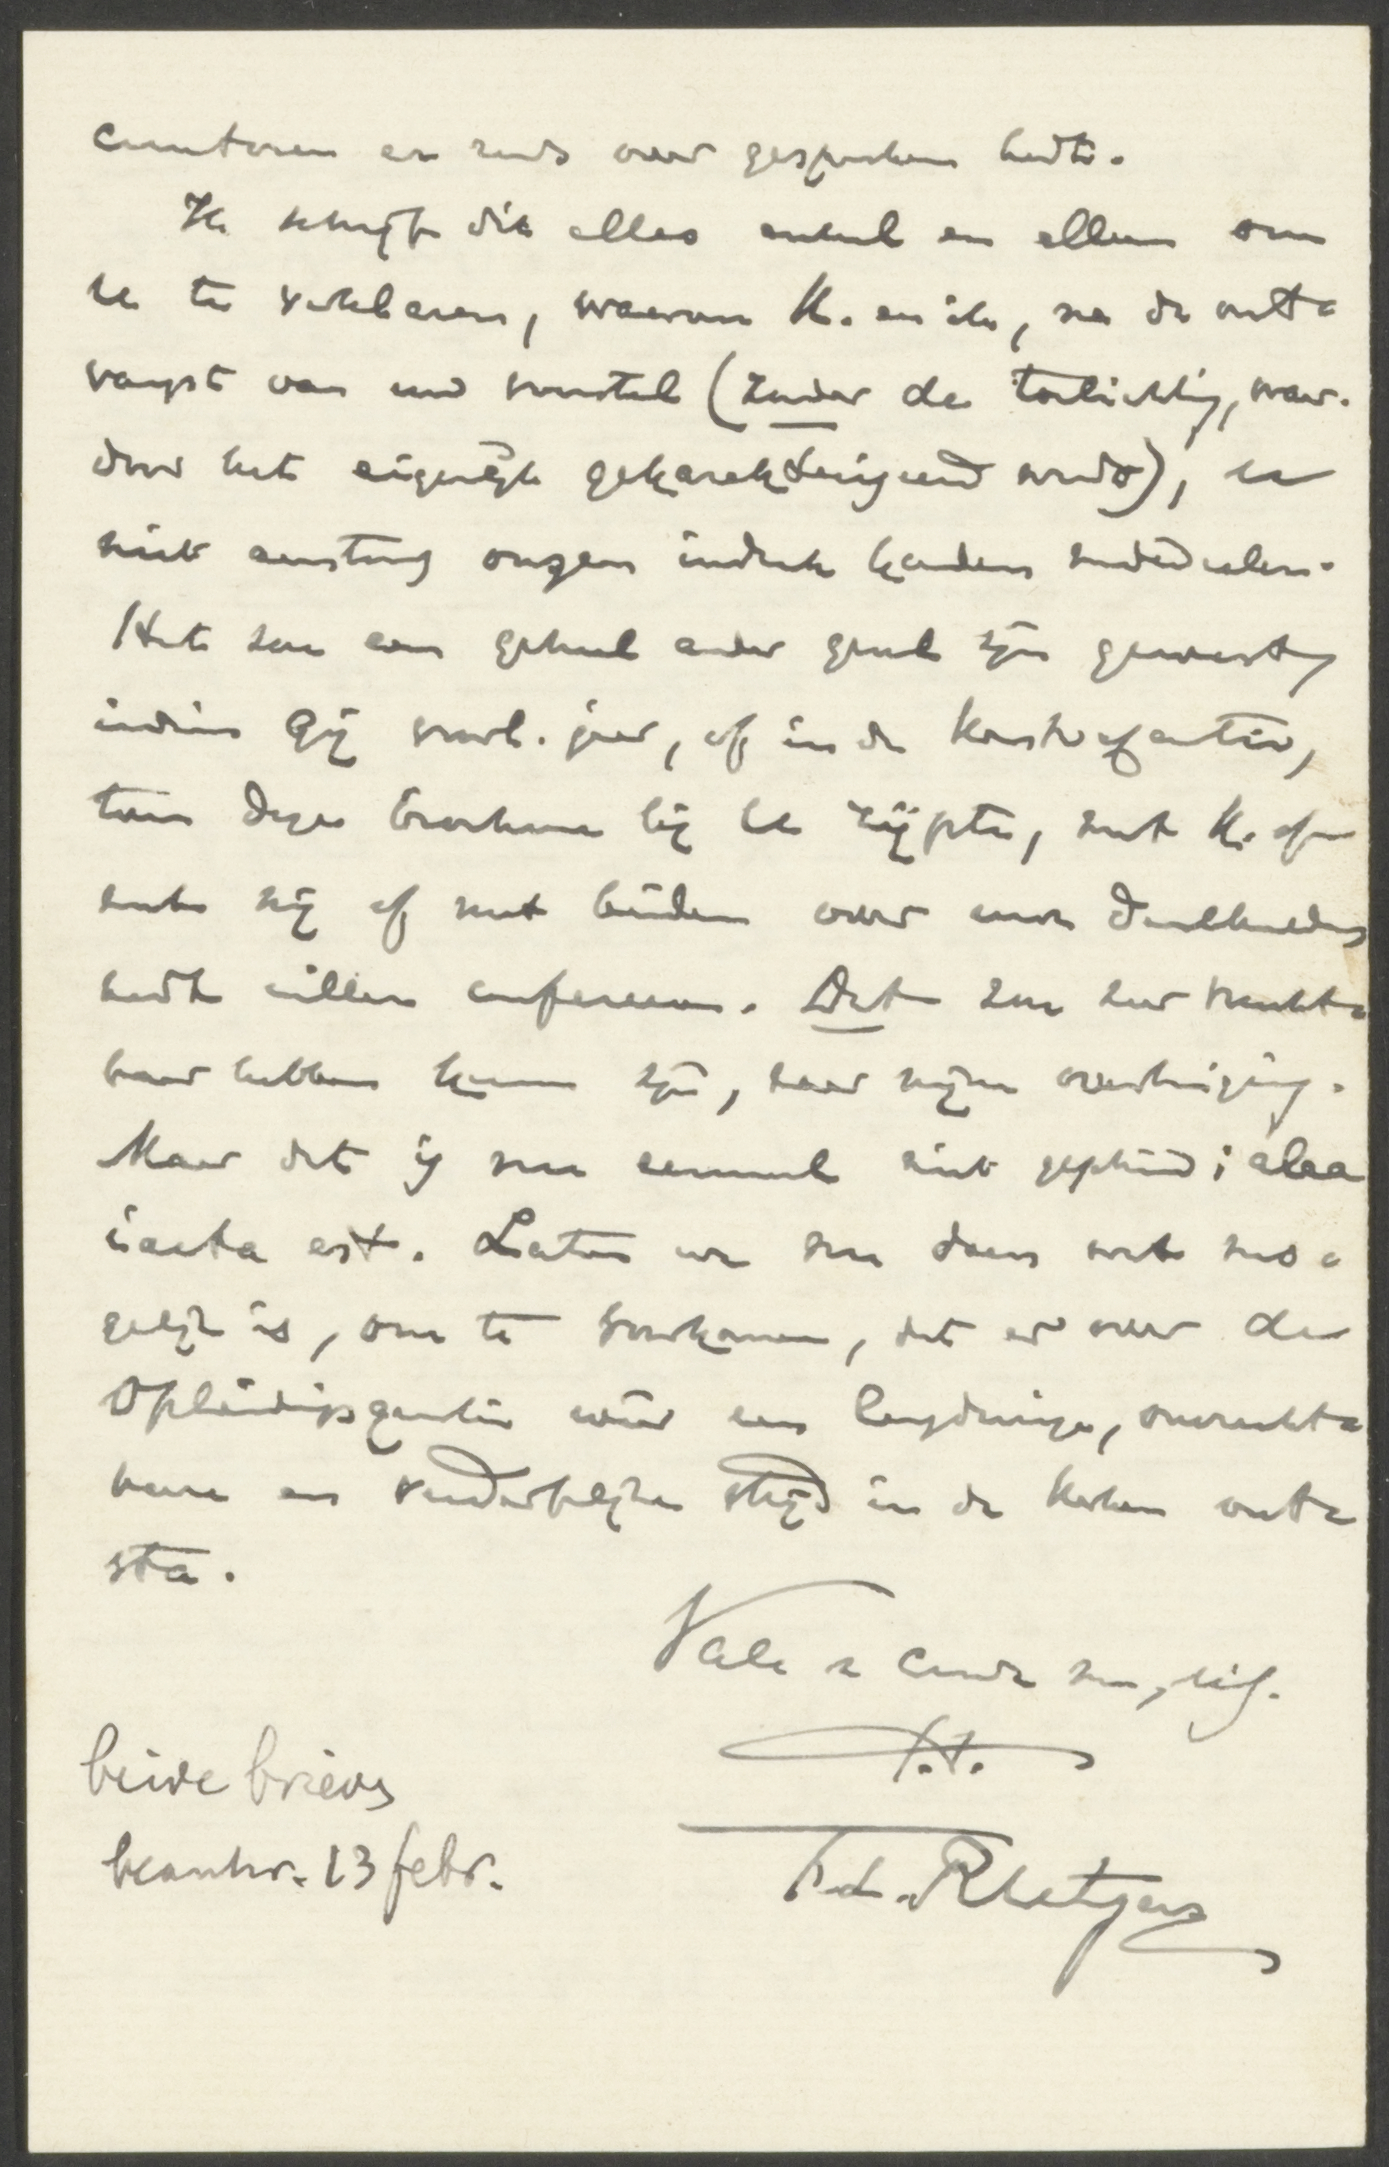 curatoren er reeds over gesproken hadt.
Ik schrijf dit alles enkel en alleen om
U te verklaren, waarom K. en ik, na de ont-
vangst van uw voorstel (zonder de toelichting, waar-
door het eigenlijk gekarakteriseerd wordt), U
niet aanstonds onzen indruk konden mededeelen.
Het zou een geheel ander geval zijn geweest,
indien Gij voorl. jaar, of in de Kerstvacantie,
toen deze brochure bij U rijpte, met K. of
met mij of met beiden over uwe denkbeelden
hadt willen confereeren. Dat zou zeer vrucht-
baar hebben kunnen zijn, naar mijne overtuiging.
Maar dat is nu eenmaal niet geschied; alea
iacta est. Laten we nu doen wat mo-
gelijk is, om te voorkomen, dat er over de
Opleidingsquaestie weer een langdurige, onvrucht-
bare en verderfelijke strijd in de Kerken ont-
sta.
Vale
t.t.
F. L. Rutgers
beide brieven
beantw. 13 febr.